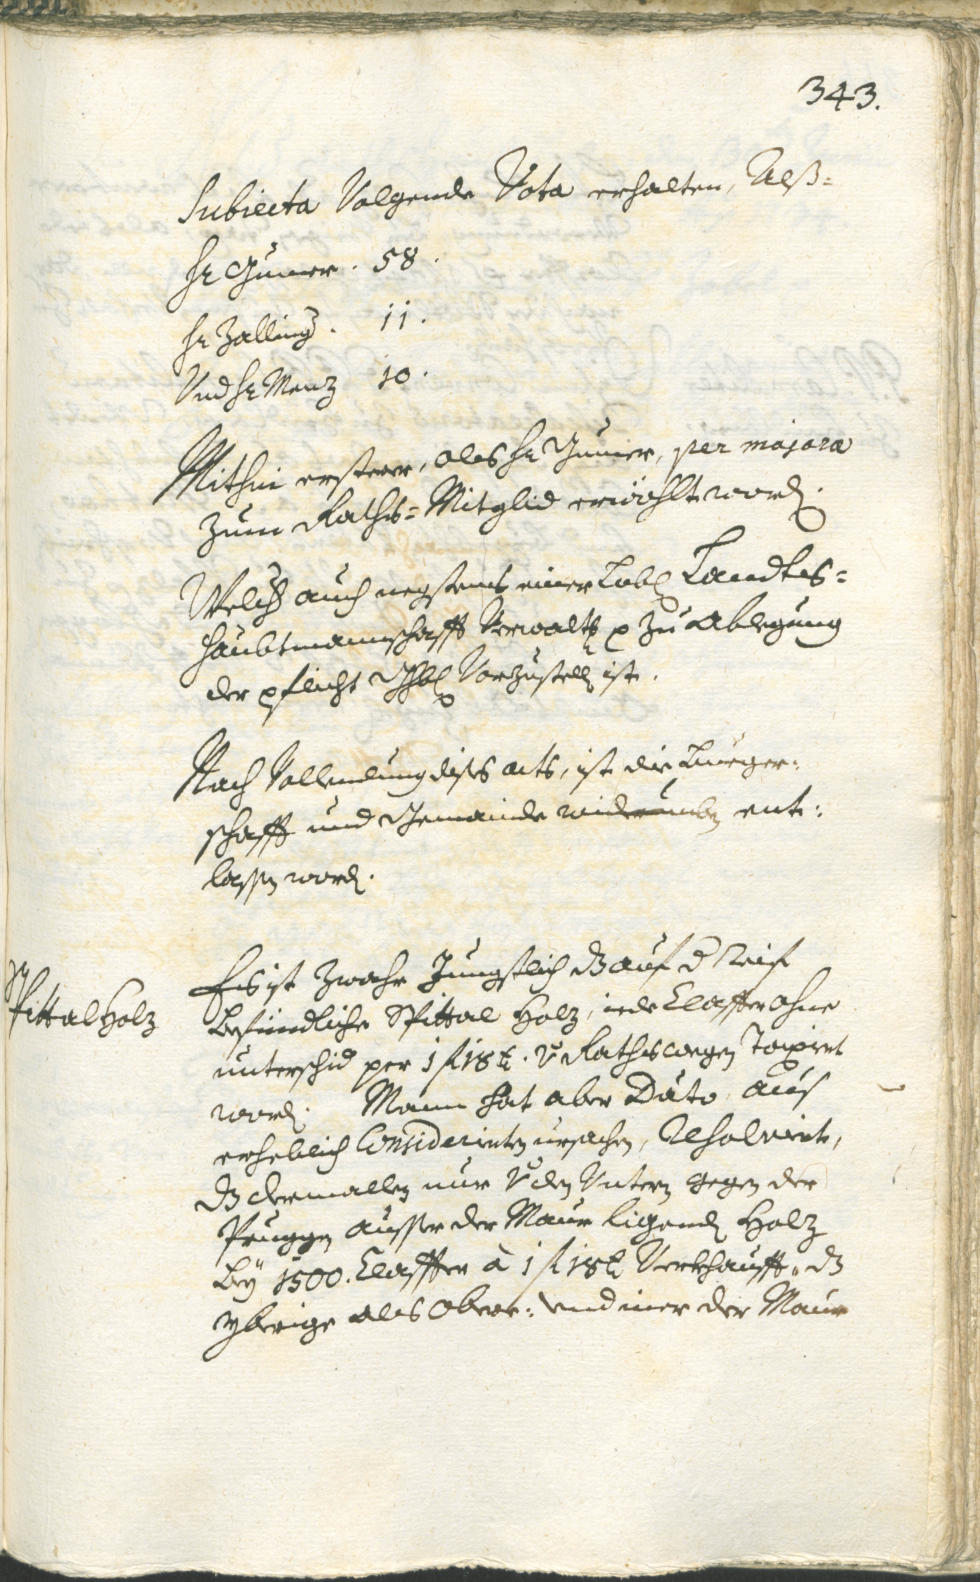 343.
Subiecta Volgende Vota erhalten, Alß=
Hr Gumer. 58.
Hr Zalling. 11.
Und Hr Menz 10.
Mithin ersterer, als Hr Gumer, per majora
zum Raths=Mitglid erwöhlt word.
Welch auch negstens einer Löbl Landts=
haubtmannschafft Verwalt p zu Ablegung
der pflicht Vorzustell ist.
Nach Vollendung dises acts, ist die Burger:
schafft und Gemainde widerumb ent:
lassen word.
Spittal Holz
Es ist zwahr Jungstlich dz auf d Reif
befündliche Spittal Holz, iede Claffter ohne
unterschid per 1 f 18 x. v Raths wegen Taxirt
word. Mann hat aber Dato aus
erheblich Considerirten ursachen, Resolvirt,
dz dermallen nur v den Untern gegen der
Pruggen ausser der Maur ligend Holz
bey 1500. Claffter à 1 f 18 x Verkhaufft, dz
yberige als Obere: und iner der Maur